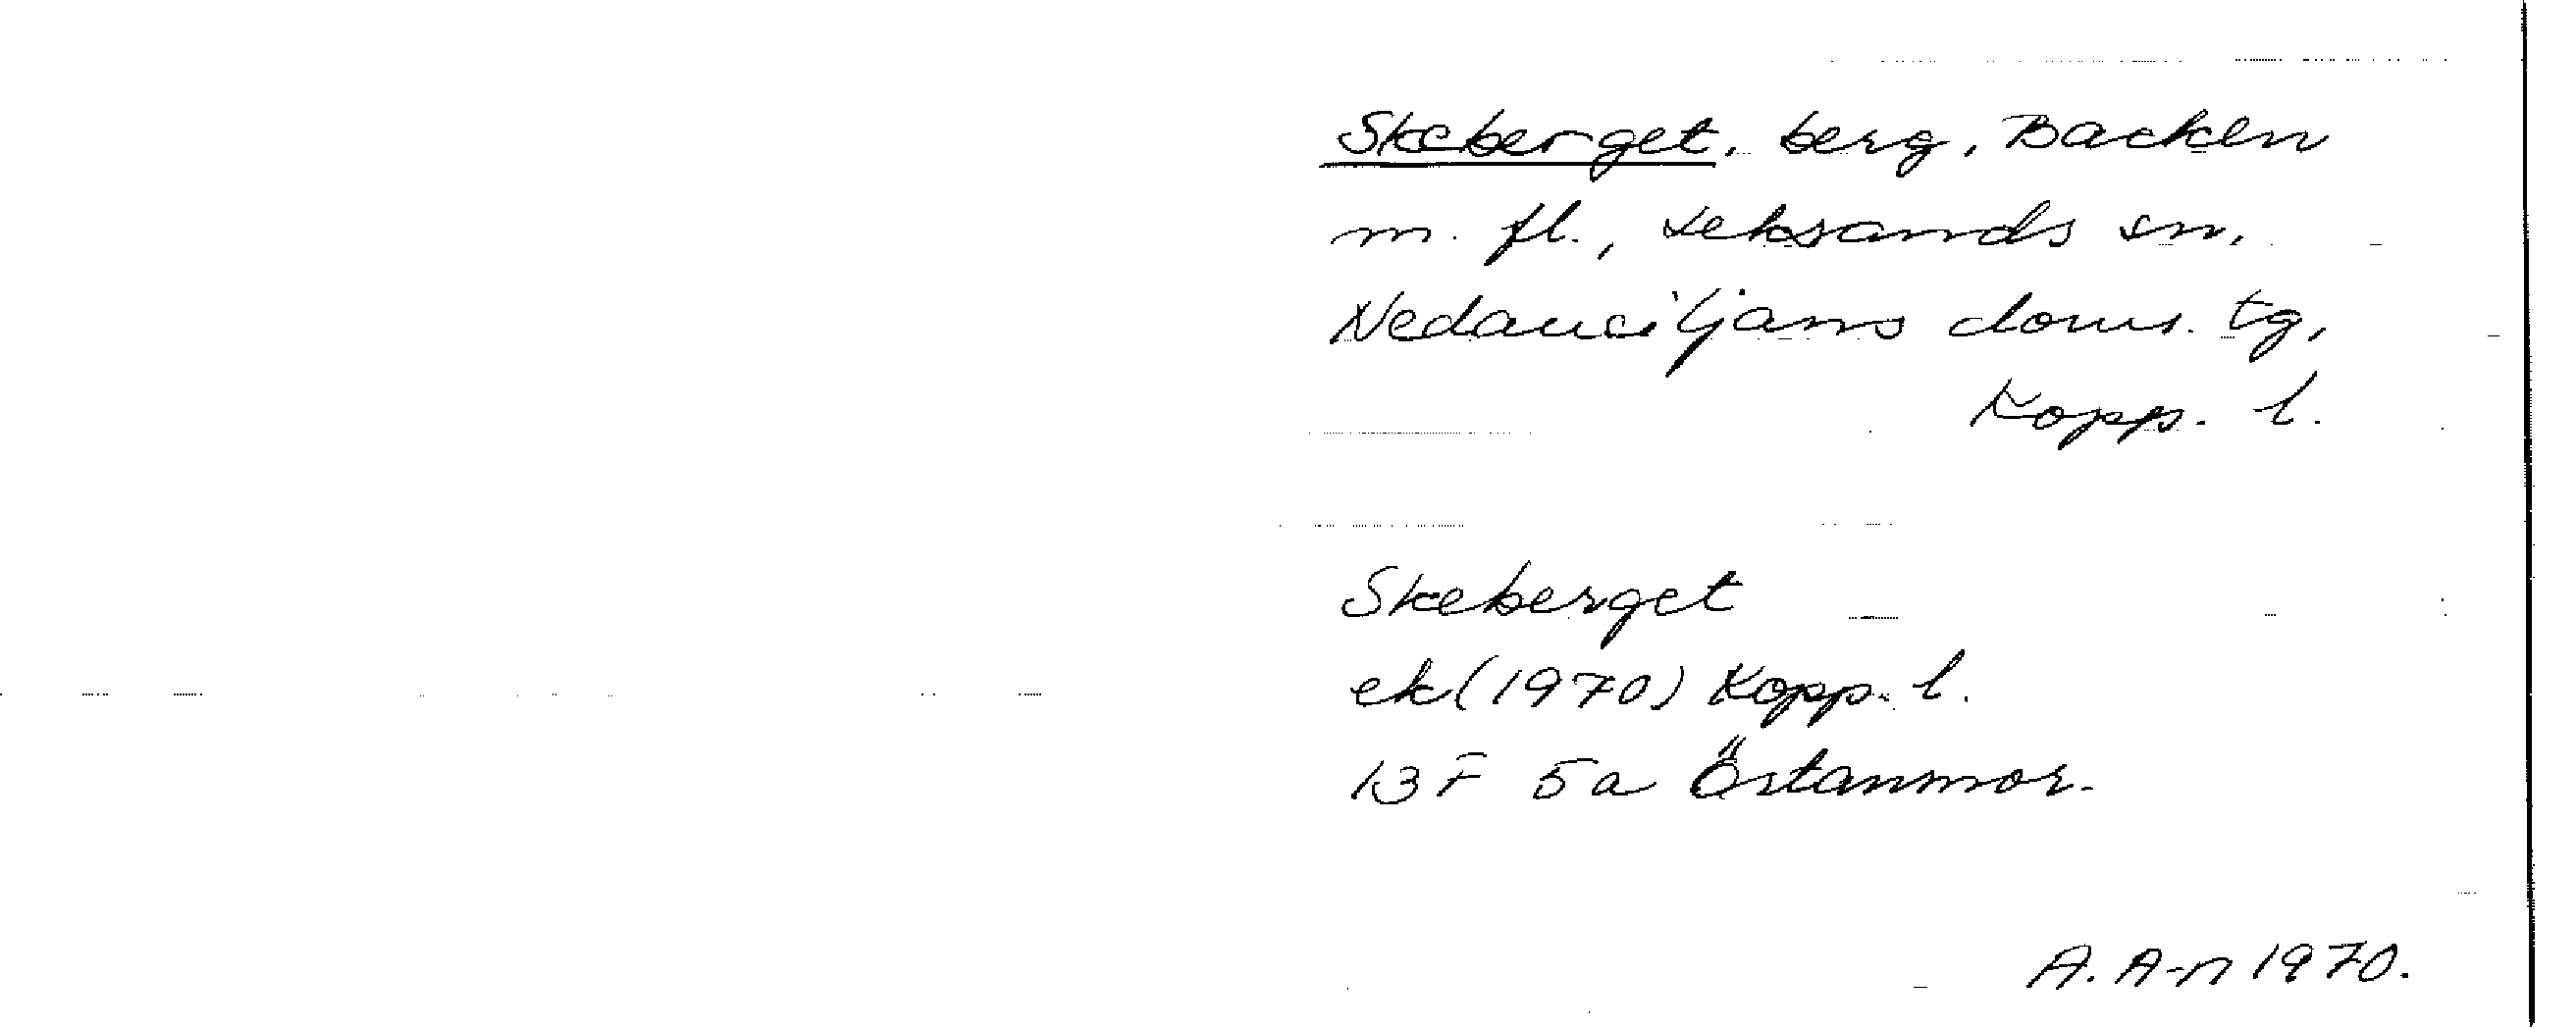 Skeberget, berg, Backen
m. fl., Leksands sn,
Nedansiljans doms. tg,
Kopp. l.
Skeberget
ek (1970) Kopp. l.
13 F 5a Östanmor.
A. A-n 1970.